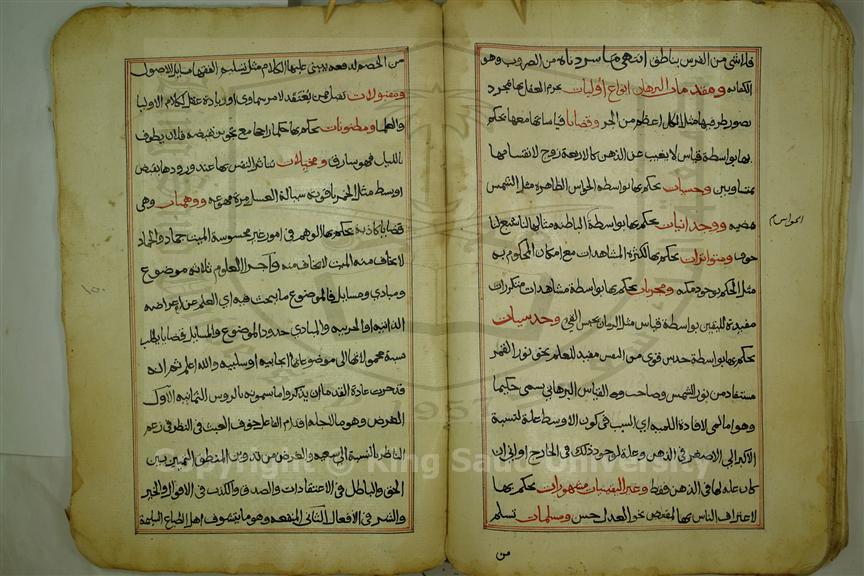 فلاشئ من الفرس بناطق انتهى ما سردناه من الضروب وهو
الكفاية ومقدمات البرهان انواع أوليات يجزم العقل بها بمجرد
تصور طرفيها مثل الكل اعظم من الجزء وقضايا قياساتها معها يحكم
بها بواسطة قياس لا يغيب عن الذهن كالاربعة زوج لانقسامها
بمتساويين وحسيات يحكم بها بواسطة الحواس الظاهرة مثل الشمس
مضيه ووجدانيات يحكم بها بواسطة الباطنه مثالها لنا شبع لنا
الحواس م
خوف ومتواترات يحكم بها لكثرة المشاهدات مع امكان المحكوم به
مثل الحكم بوجود مكه ومجربات يحكم بها بواسطة مشاهدات متكررات
مفيدة لليقين بواسطة قياس مثل الرمان يحبس القئ وحدسيات
يحكم بها بواسطة حدس قوى من النفس مفيد للعلم نحو نور القمر
مستفاد من نور الشمس وصاحب هذا القياس البرهاني يسمى حكيما
وهو اما لمى لافادة اللميه اي السبب في كون الاوسط علة لنسبة
الاكبر الى الاصغر في الذهن وعلة لوجود ذلك في الخارج او انى ان
كان علة لها في الذهن فقط وغير اليقينيات مشهورات يحكم بها
لاعتراف الناس بها المقتض نحو العدل حسن ومسلمات تسلم
من
من الخصم لدفعه يبنى عليها الكلام مثل تسليم الفقها مسايل الاصول
ومقبولات تصل ممن يعتقد لامر سماوى او زيادة عقل ككلام الاوليا
والعلما ومظنونات يحكم بها حكما راجحا مع تجويز نقيضه فلان يطوف
بالليل فهو سارق ومخيلات تتاثر النفس بها عند ورودها بقبض
او بسط مثل الخمر ياقوته سيالة العسل مرة مهوعه ووهميات وهى
قضايا كاذبة يحكم بها الوهم فى امور غير محسوسة الميت جماد والجماد
لا يخاف منه الميت لا يخاف منه وآجزا العلوم ثلاثه موضوع
ومبادي ومسايل فالموضوع ما يبحث فيه اي العلم عن اعراضه
الذاتيه والمبادي حدود الموضوع والمسايل قضايا يطلب
نسبة محمولاتها الى موضوعاتها ايجابيه او سلبيه والله اعلم ثم انه
قد جرت عادة القدما ان يذكروا ما يسمونه بالروس الثمانيه الاول
الغرض وهو ما لاجله اقدام الفاعل خوف العبث فى النظر فى زعم
الناظر بالنسبة الى سعيه والغرض من تدوين المنطق التمييز بين
الحق والباطل في الاعتقادات والصدق والكذب فى الاقوال والخير
والشر فى الافعال الثانى المنفعه وهو ما يتشوف اهل الطباع السليمة
Copyright © King Saud University
1957